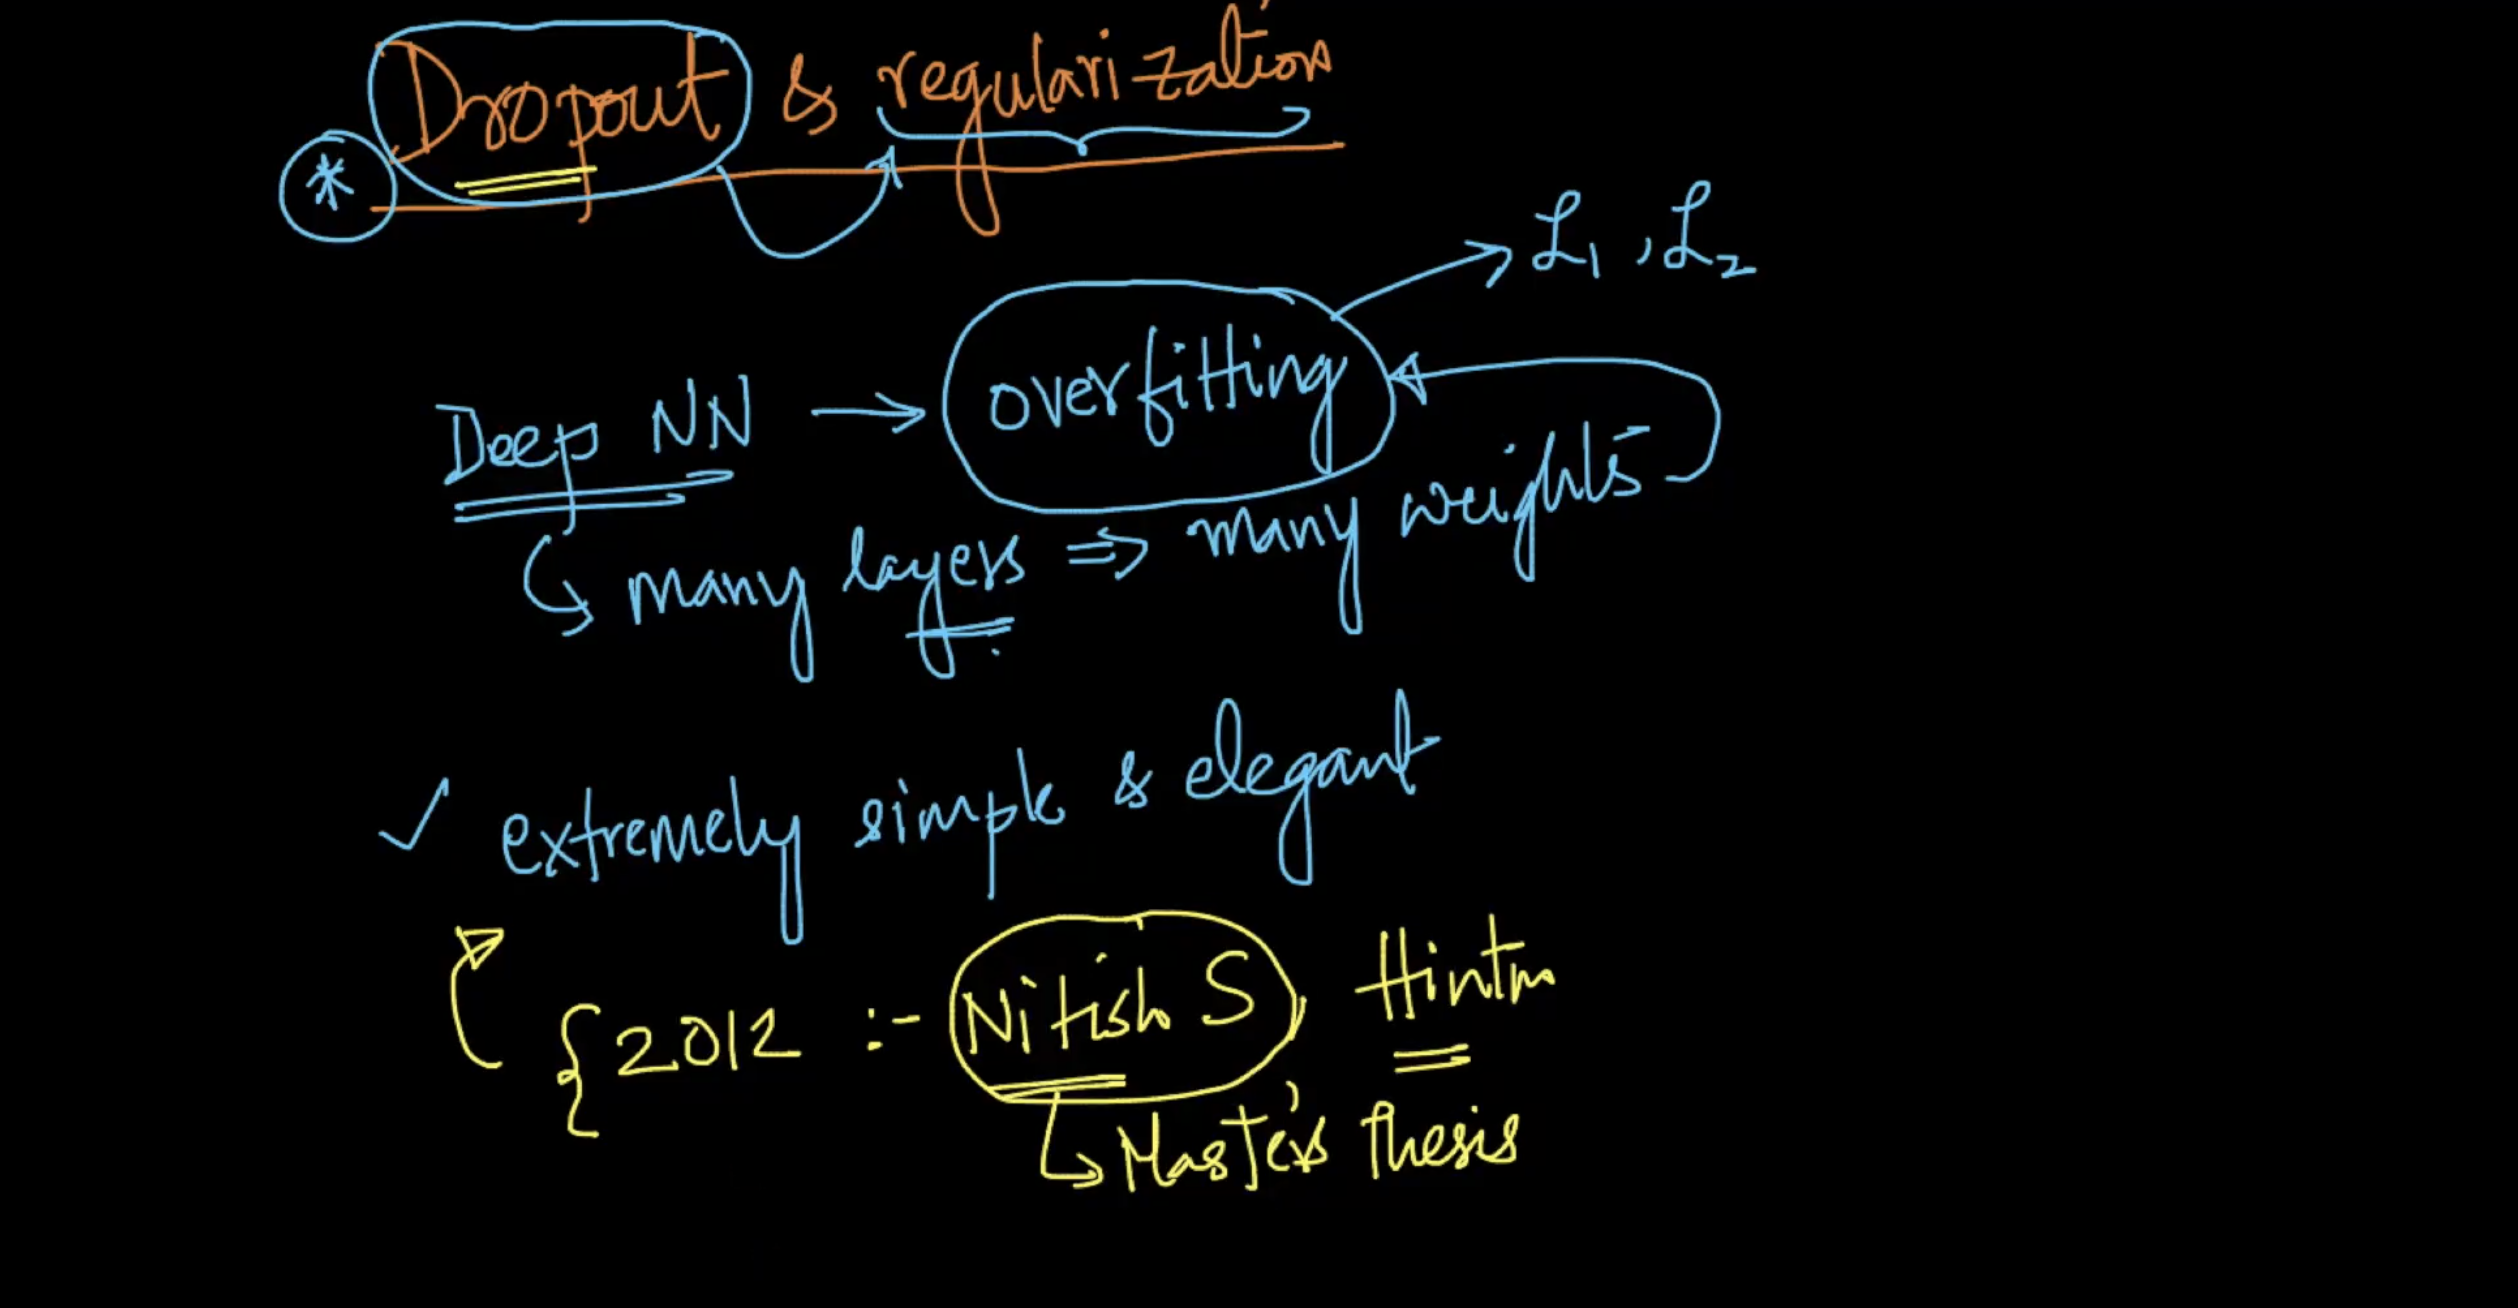 Dropout & regularization
*
L1, L2
Deep NN → overfitting
↳ many layers ⇒ many weights
✓ extremely simple & elegant
{2012 :- Nitish S, Hinton
↳ Master's thesis